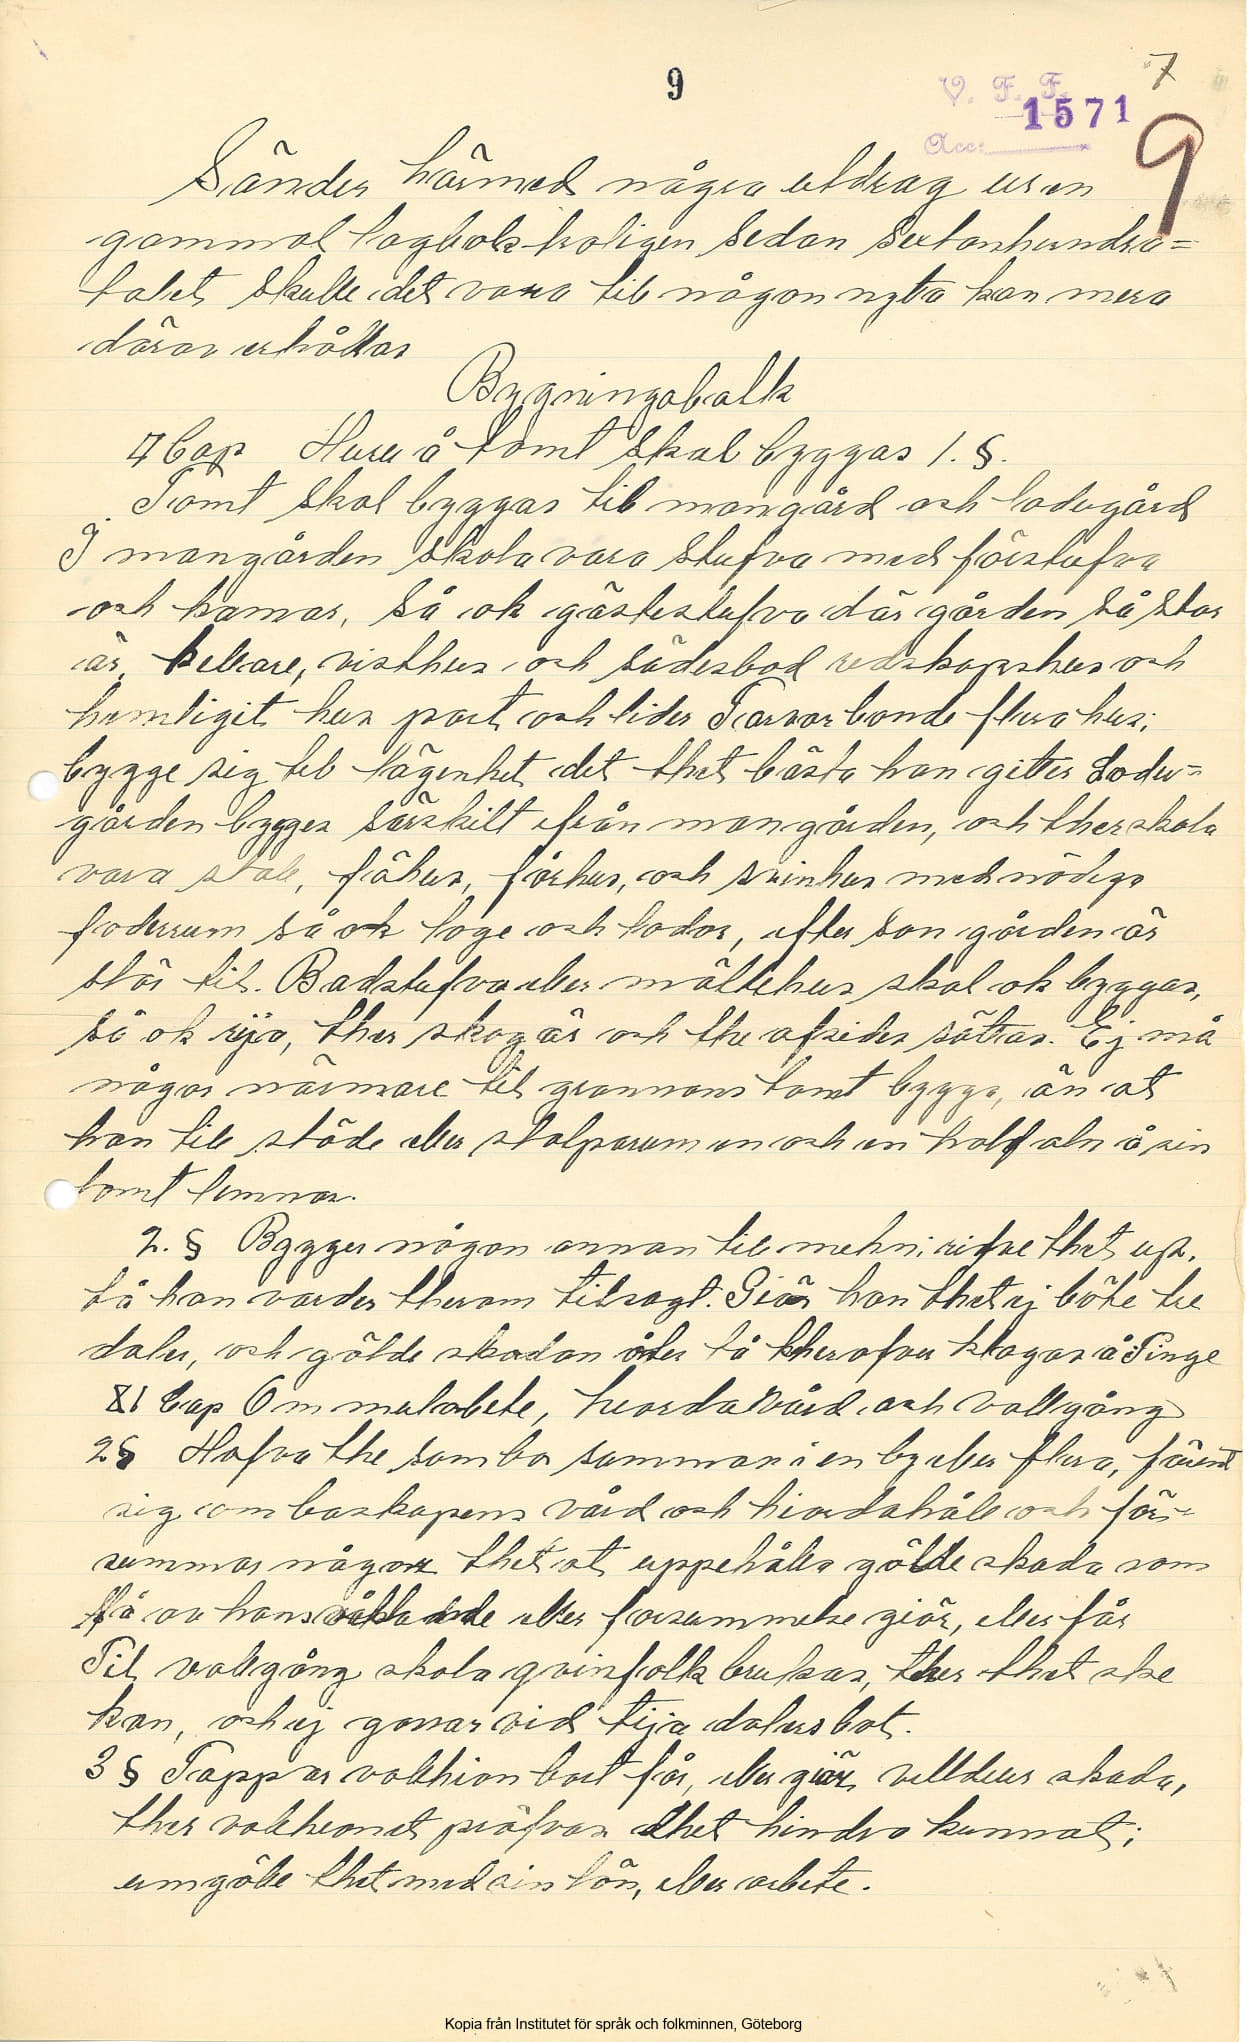 9
7
V. F. F.
1571
Acc:
9
Sänder härmed några utdrag ur en
gammal lagbok troligen sedan sextonhundra=
talet skulle det vara till någon nytta kan mera
därav erhållas
Bygningabalk
4 Cap Huru å tomt skal byggas 1. §.
Tomt skal byggas till mangård och ladugård
I mangården skola vara stufva med förstufva
och kamar, så ok gästestufva där gården så stor
är, kellare, visthus och sädesbod redskapshus och
hemligit hus port och lider Tarvar bonde flera hus;
bygge sig till lägenhet det thet bästa han gitter Ladu=
gården bygges särskilt ifrån mangården, och ther skola
vara stall, fähus, fårhus, och svinhus med nödiga
foderrum så ok loge och lador, efter son gården är
stör til. Badstufva eller mältehus skal ok byggas,
så ok rija, ther skog är och the afsides sättas. Ej må
någor närmare til grannans tomt bygga, än at
han till städe eller stolparum en och en half aln å sin
tomt lemnar.
2. § Bygger någon annan till mehn; rifve thet up,
tå han varder therom tilsagt. Giör han thet ej böte tre
daler, och gälde skadan åter tå therofver klagas å Tinge
Cap Om mulabete, hiorda vård och vallgång
2§ Hafva the som bo samman i en by eller flera, förent
sig om boskapens vård och hiordahåll och för=
summar någor thet at uppehålla gälde skada som
få av hans vållande eller forsummelse giör, eller får
Til vallgång skola qvinfolk brukas, ther thet ske
kan, och ej gossar vid tija dalers bot.
3 § Tappar vallhion bort får, eller giör velldeur skada,
ther vallheonet pröfvas thet hindra kunnat;
umgälle thet med sin lön, eller arbete.
Kopia från Institutet för språk och folkminnen, Göteborg